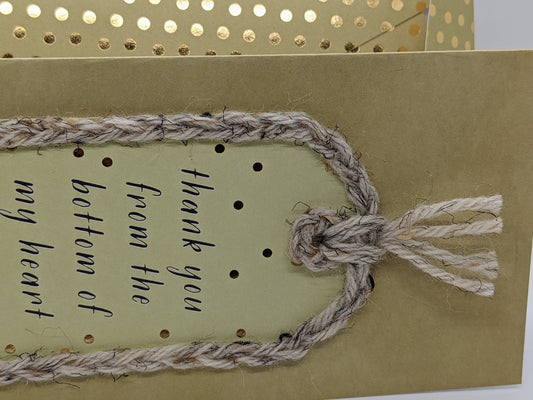 thank you
from the
bottom of
my heart